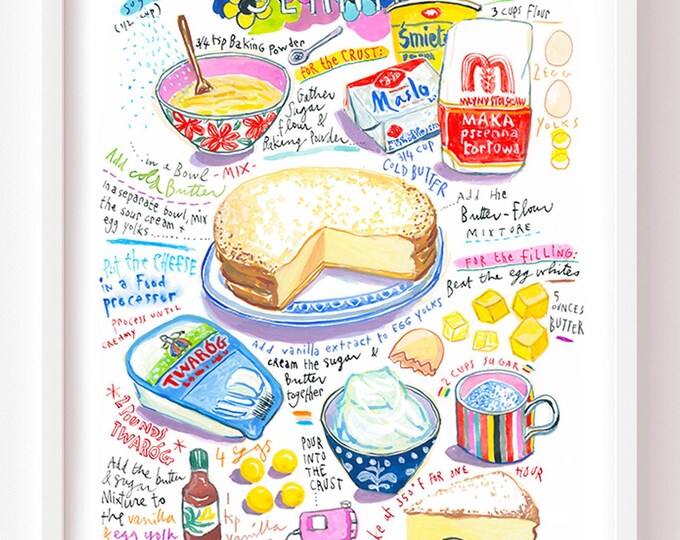 (1/2 cup)
3/4 tsp Baking Powder
3 cups Flour
FOR the CRUST:
Gather
Sugar
flour &
Baking Powder...
Masło
3/4 cup
COLD BUTTER
MĄKA
pszenna
tortowa
2 EGG
YOLKS
... in a Bowl
- MIX -
Add cold Butter
in a separate bowl, mix
the sour cream +
egg yolks
Add the
Butter-Flour
MIXTURE
FOR the filling:
Beat the egg whites
Put the CHEESE
in a Food
processor
PROCESS UNTIL
CREAMY
5
OUNCES
BUTTER
Add vanilla extract to EGG YOLKS
cream the sugar &
Butter
together
TWARÓG
2 POUNDS
TWARÓG
2 CUPS SUGAR
4 eggs
POUR
INTO
THE
CRUST
Add the butter
& sugar
Mixture to
the vanilla
& egg yolk
1
tsp
vanilla
ke at 350 F FOR ONE
HOUR